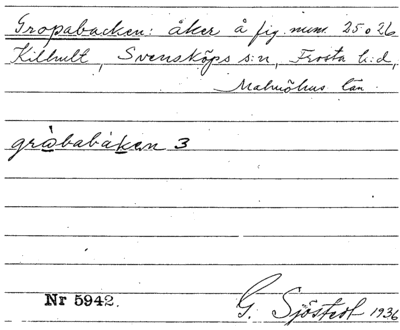 Gropabacken: åker å fig. num. 25 o 26
Kilhult, Svensköps s:n, Frosta h:d,
Malmöhus län.
gråbabakan 3
Nr 5942.
G. Sjöstedt 1936